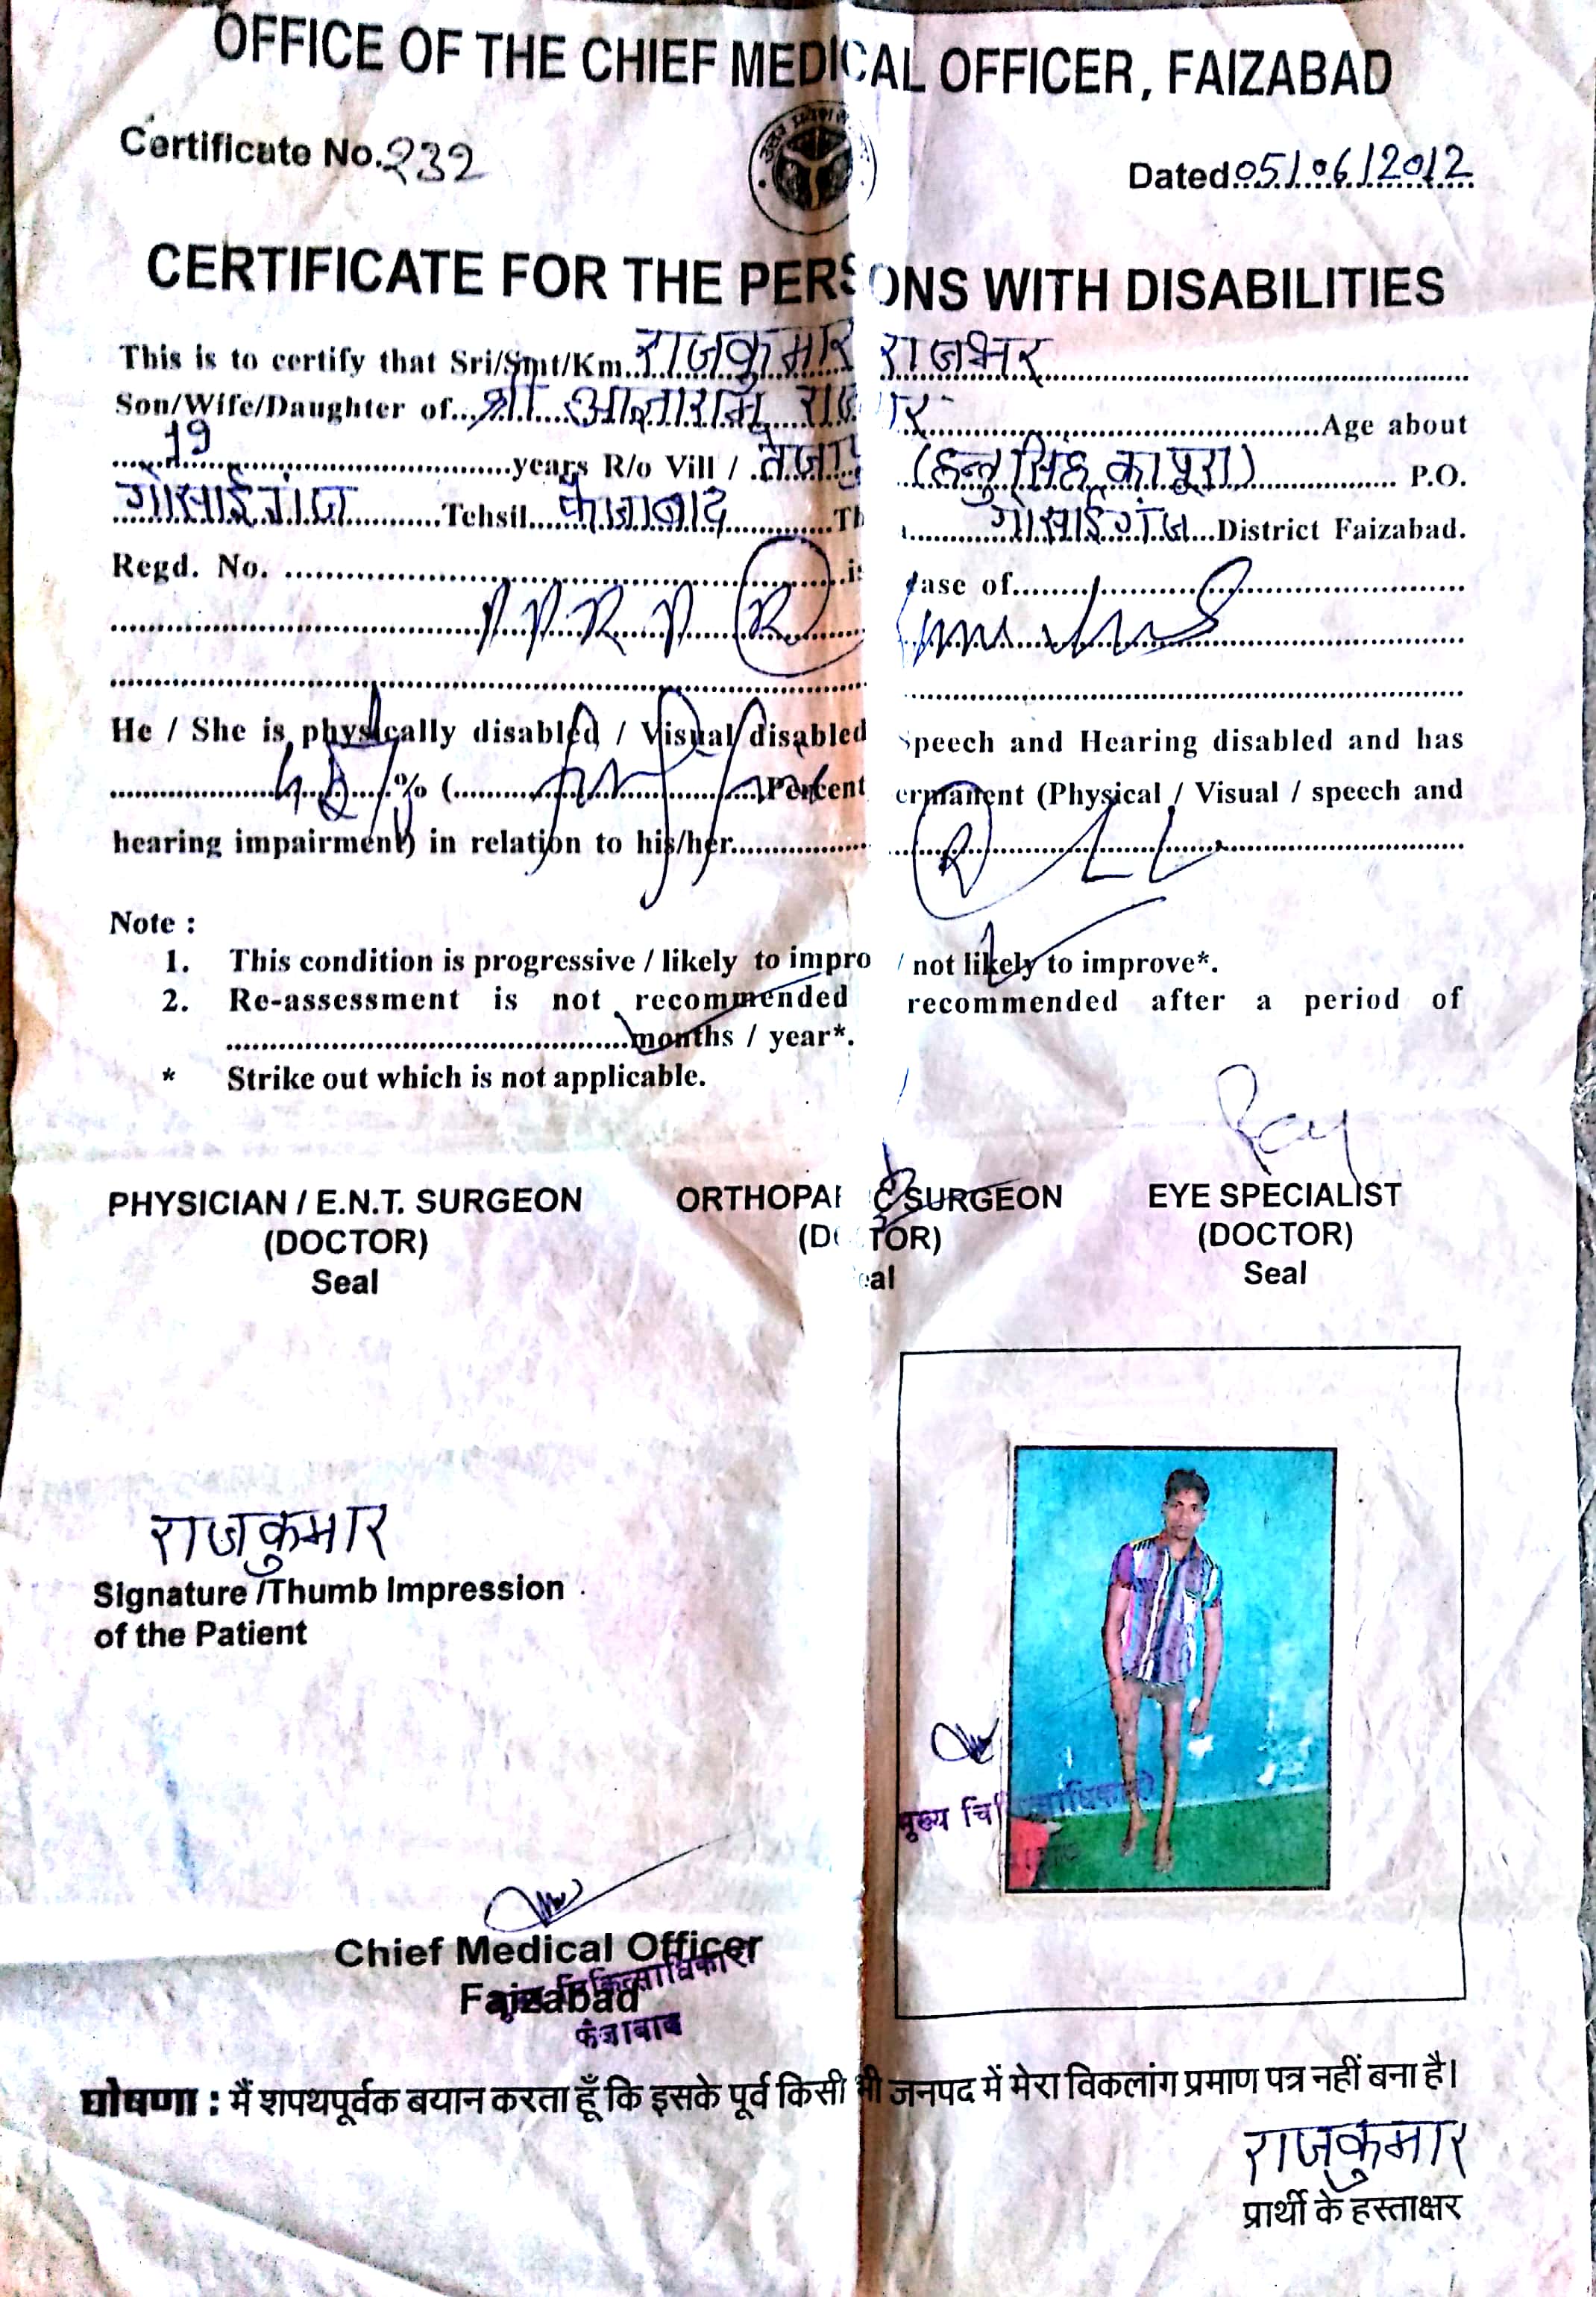 OFFICE OF THE CHIEF MEDICAL OFFICER, FAIZABAD
Certificate No. 232
Dated 05/06/2012
CERTIFICATE FOR THE PERSONS WITH DISABILITIES
This is to certify that Sri/Smt/Km. राजकुमार राजभर
Son/Wife/Daughter of श्री Age about
19 years R/o Vill / (हन्तु सिंह का पूरा) P.O.
गोसाईगंज Tehsil फैजाबाद गोसाईगंज District Faizabad.
Regd. No. case of
He / She is physically disabled / Visual disabled Speech and Hearing disabled and has
% ( Percent ermanent (Physical / Visual / speech and
hearing impairment) in relation to his/her
Note :
1. This condition is progressive / likely to impro / not likely to improve*.
2. Re-assessment is not recommended recommended after a period of
months / year*.
* Strike out which is not applicable.
PHYSICIAN / E.N.T. SURGEON
(DOCTOR)
Seal
C SURGEON
EYE SPECIALIST
(DOCTOR)
Seal
राजकुमार
Signature /Thumb Impression
of the Patient
मुख्य चिकित्साधिकारी
Chief Medical Officer
Faizabad
चिकित्साधिकारी
फैजाबाद
घोषणा : मैं शपथपूर्वक बयान करता हूँ कि इसके पूर्व किसी भी जनपद में मेरा विकलांग प्रमाण पत्र नहीं बना है।
राजकुमार
प्रार्थी के हस्ताक्षर